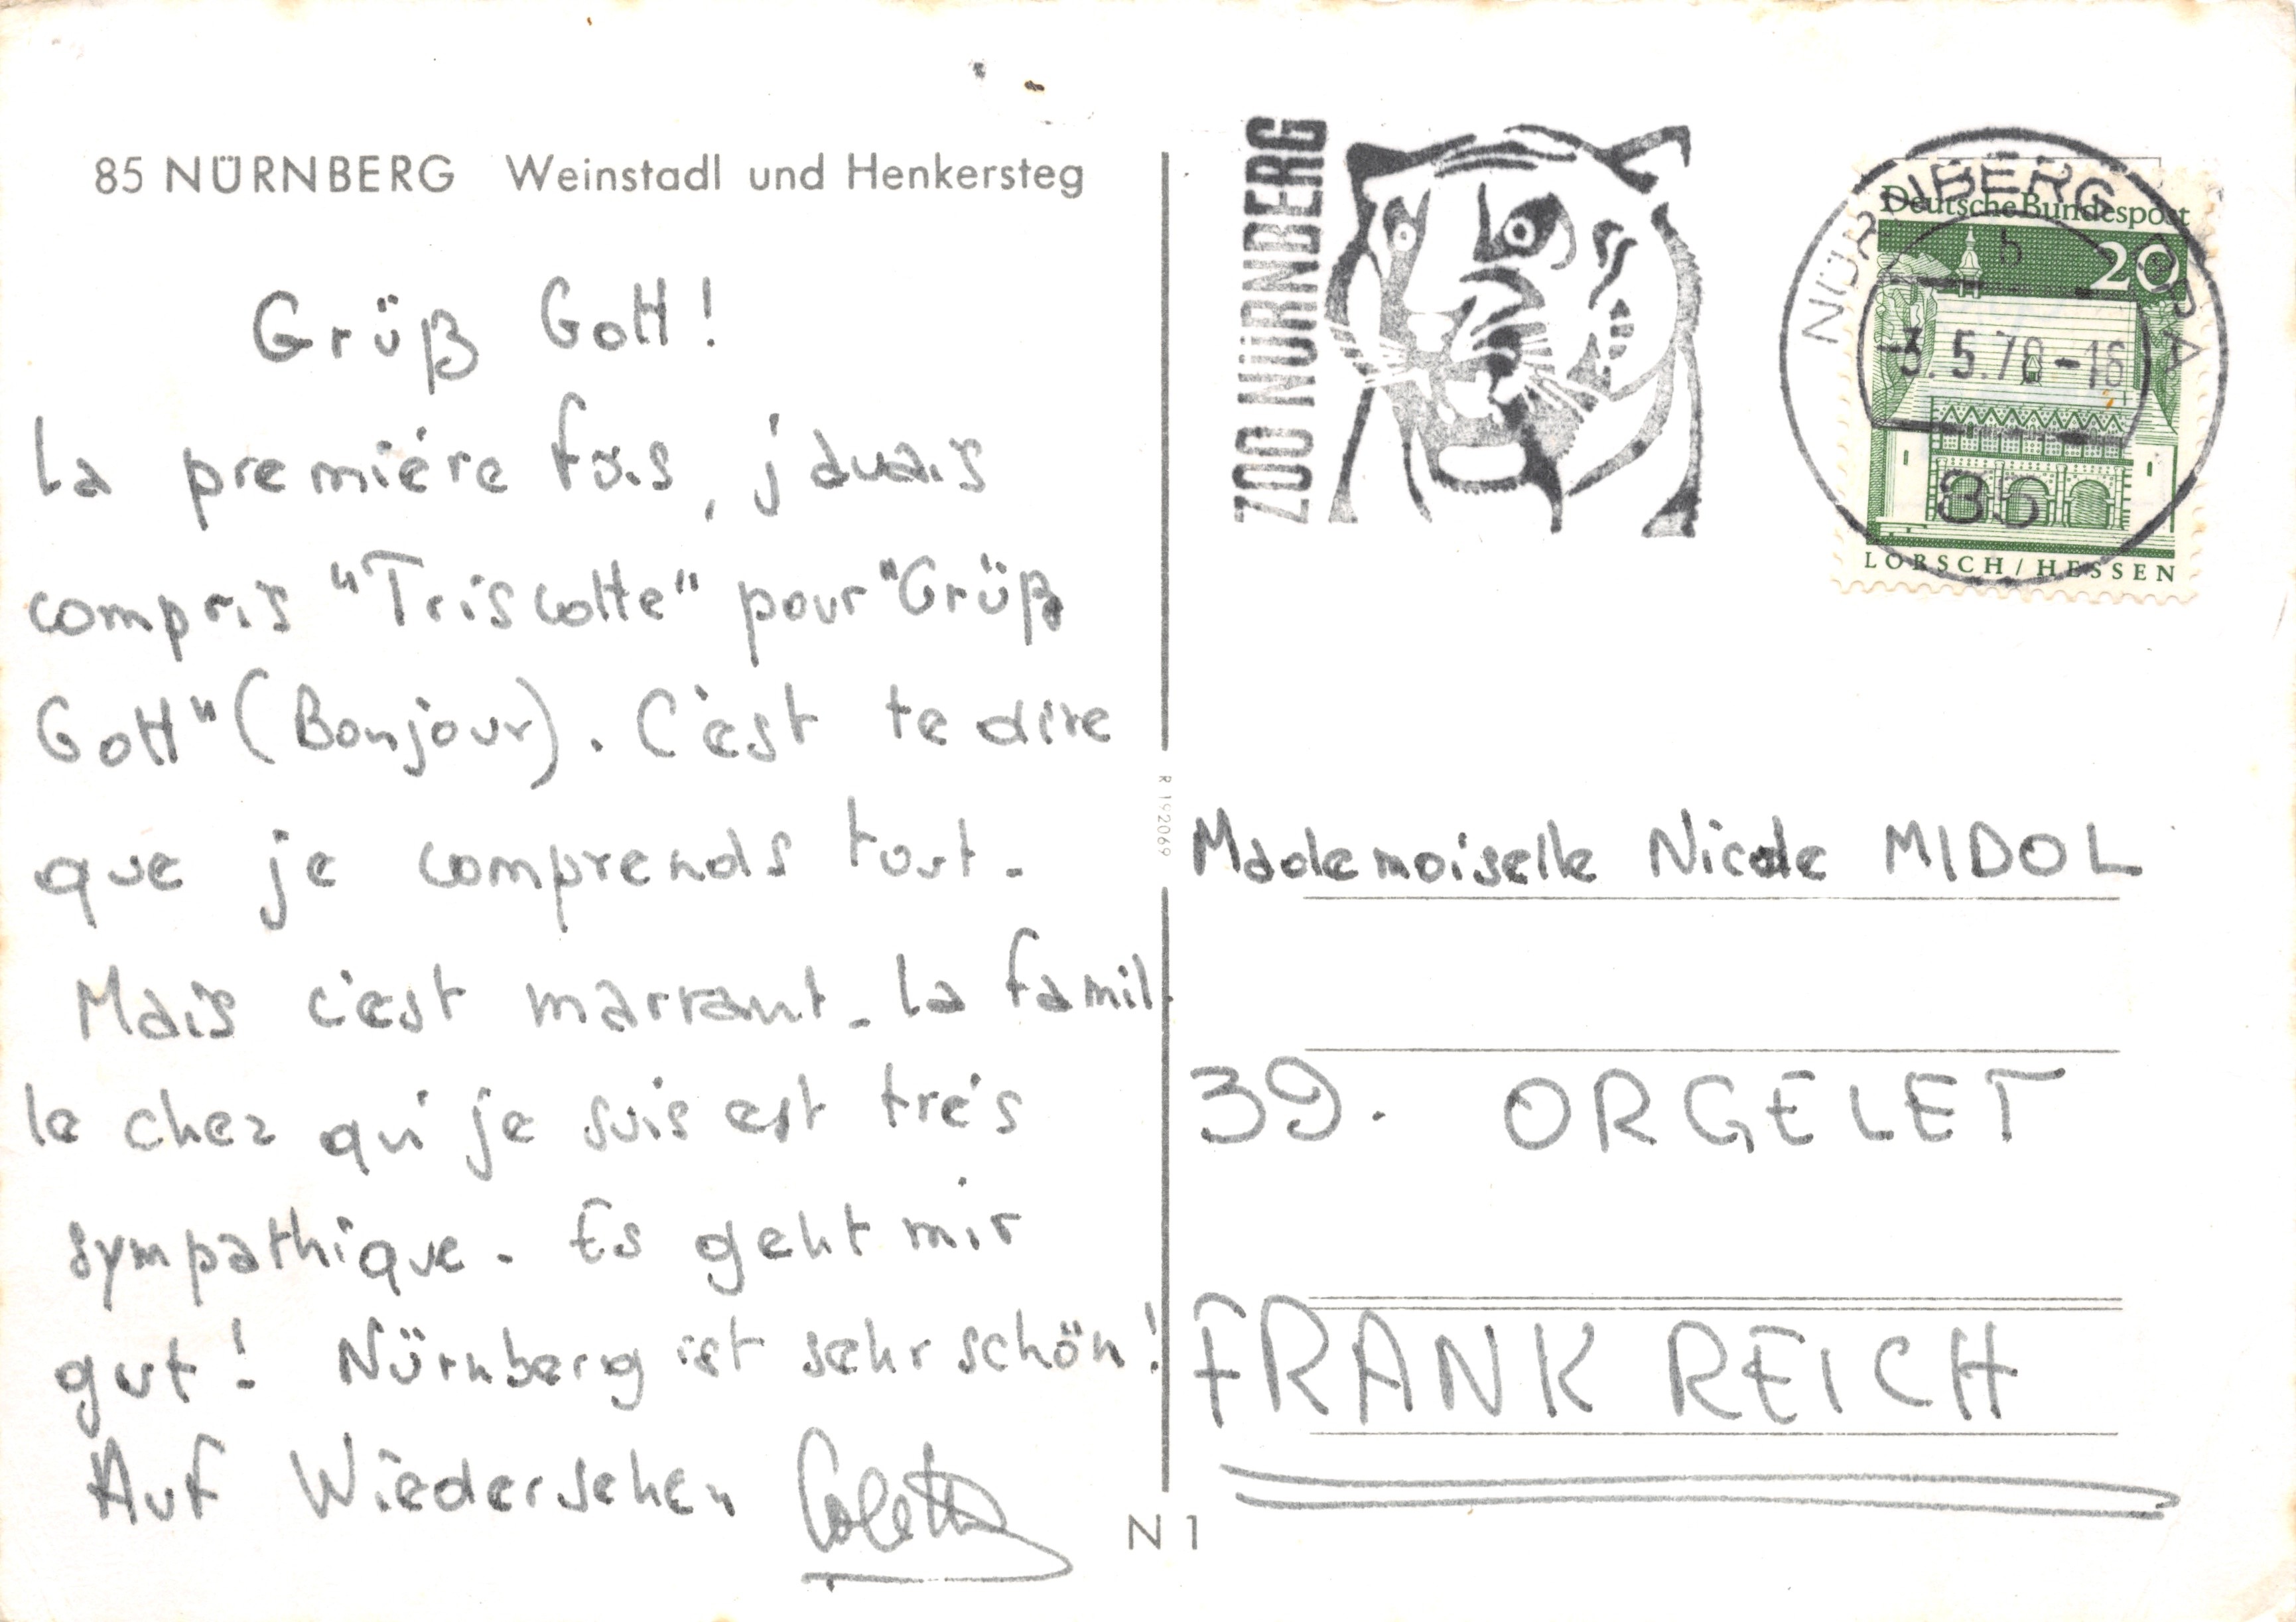 85 NÜRNBERG Weinstadl und Henkersteg
Grüß Gott!
La première fois, j'avais
compris "Triscotte" pour "Grüß
Gott" (Bonjour). C'est te dire
que je comprends tout.
Mais c'est marrant. La famil
le chez qui je suis est très
sympathique. Es geht mir
gut! Nürnberg ist sehr schön!
Auf Wiedersehen Colette
R 192069
N 1
ZOO NÜRNBERG
NÜRNBERG
Deutsche Bundespost
b
20
-3.5.70-16
85
LORSCH / HESSEN
Mademoiselle Nicole MIDOL
39. ORGELET
FRANKREICH